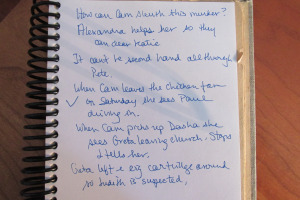 How can Cam sleuth this murder?
Alexandra helps her so they
can clear Katie
It can't be second hand all through
Pete.
When Cam leaves the chicken farm
✓ on Saturday she sees Paul
driving in.
When Cam picks up Dasha she
sees Greta leaving church. Stops
& tells her.
Greta left e cig cartridge around
so Judith is suspected,